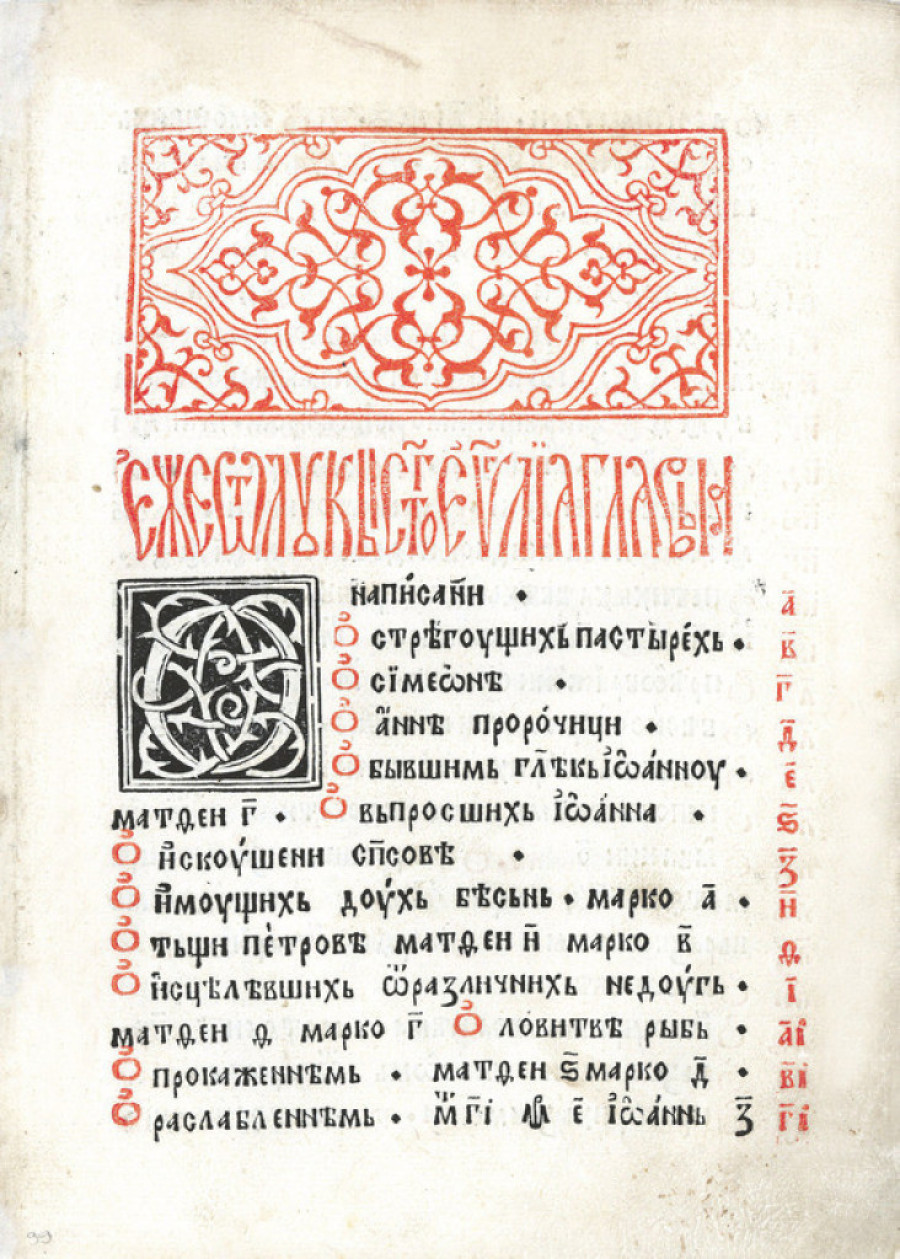 ЕЖЕ Ѿ ЛꙊКЫ СТ҃ГО ЕѴ҃ЛІА ГЛАВИ
О написанїи · а҃
Ѻ стрѣгоущихь пастырехь · в҃
Ѻ сїмеѡнѣ · г҃
Ѻ а҆ннѣ проро́чици · д҃
Ѻ бывшимь гл҃ѣ кь іѡа́нноу · є҃
матѳеи г҃ · Ѻ вьпросшихь іѡа́нна · ѕ҃
Ѻ и҆скоушени сп҃совѣ · з҃
Ѻ и҆моущихь доухь бѣсьнь · марко а҃ · и҃
Ѻ тьщи пе́тровѣ матѳеи и҃ марко в҃ ѳ҃
Ѻ и҆сцѣлѣвшихь ѿ различнихь недоугь · і҃
матѳеи ѳ҃ марко г҃ Ѻ ловитвѣ рыбь · а҃і
Ѻ прокаженнѣмь · матѳеи ѕ҃ марко д҃ · в҃і
Ѻ раслабленнѣмь · м҃ г҃і є҃ іѡа́ннь з҃ г҃і
99